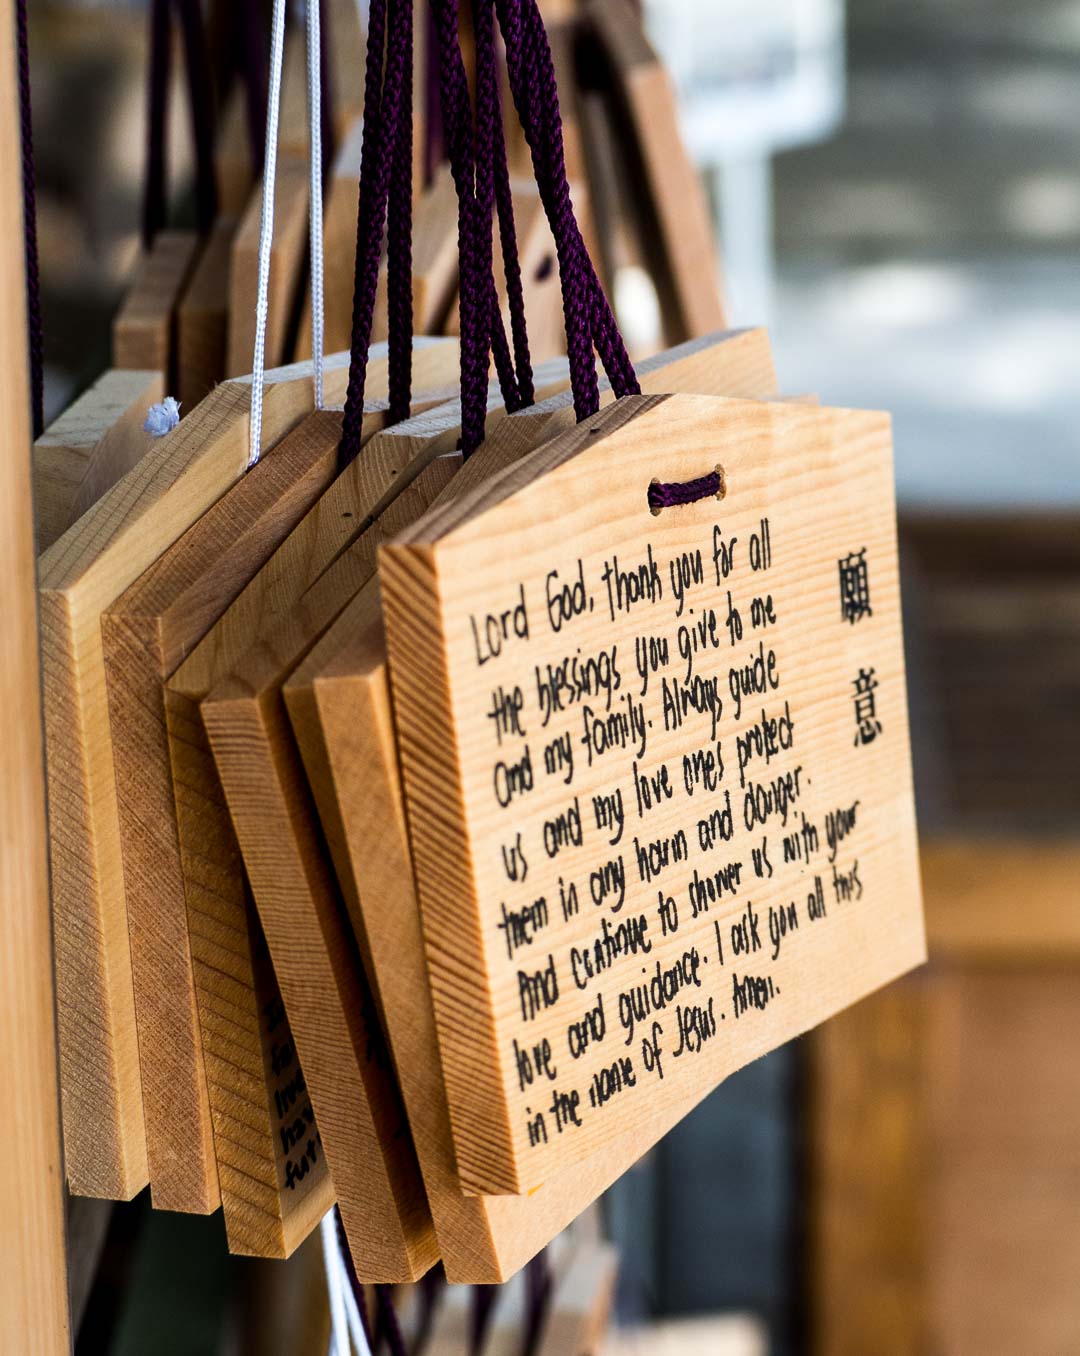 願意
Lord God, thank you for all
the blessings you give to me
and my family. Always guide
us and my love ones protect
them in any harm and danger.
And continue to shower us with your
love and guidance. I ask you all this
in the name of Jesus. Amen.